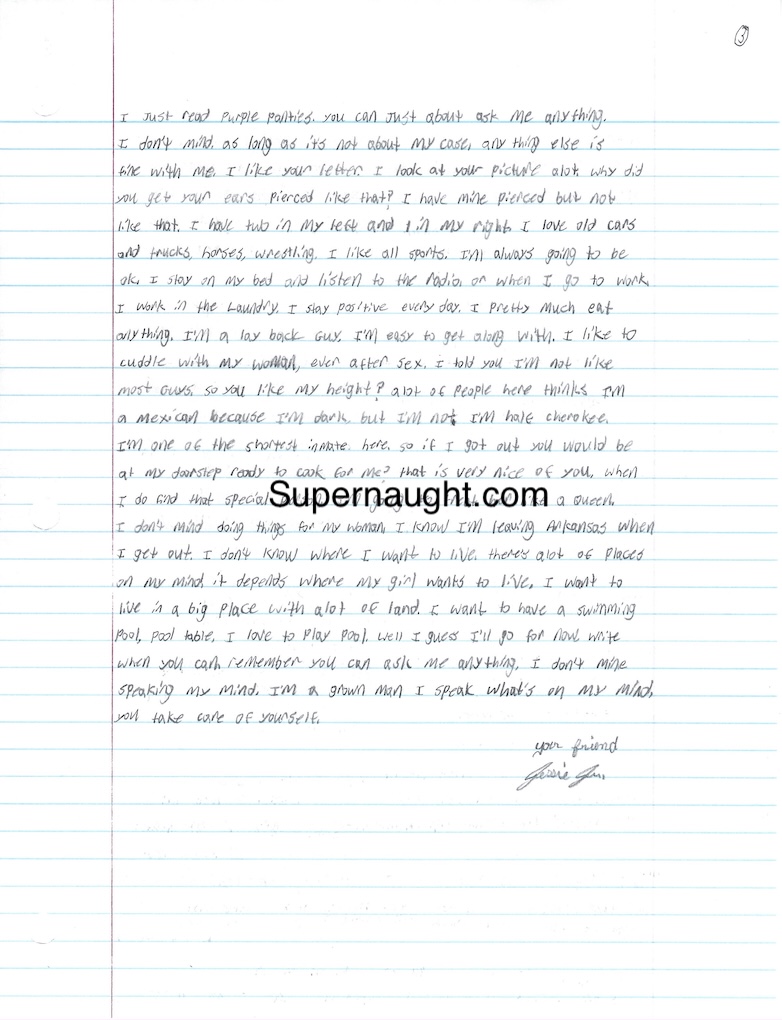 3
I Just read Purple Panties. you can Just about ask me anything.
I don't mind. as long as it's not about my case, any thing else is
fine with me. I like your letter. I look at your picture alot. why did
you get your ears pierced like that? I have mine pierced but not
like that. I have tub in my left and 1 in my right. I love old cars
and trucks, horses, wrestling. I like all sports. I'm always going to be
ok. I stay on my bed and listen to the radio. or when I go to work.
I work in the Laundry. I stay positive every day. I Pretty much eat
anything. I'm a lay back Guy. I'm easy to get along with. I like to
cuddle with my woman, even after sex. I told you I'm not like
most Guys. so you like my height? alot of people here thinks I'm
a mexican because I'm dark, but I'm not I'm half cherokee.
I'm one of the shortest inmate. here. so if I got out you would be
at my doorstep ready to cook for me? that is very nice of you, when
I do find that special a queen.
Supernaught.com
I don't mind doing things for my woman. I know I'm leaving Arkansas when
I get out. I don't know where I want to live. there's alot of places
on my mind. it depends where my girl wants to live. I want to
live in a big place with alot of land. I want to have a swimming
Pool, pool table. I love to Play pool. well I guess I'll go for now. write
when you can. remember you can ask me anything. I don't mine
speaking my mind. I'm a grown man I speak what's on my mind.
you take care of yourself.
your friend
Jessie